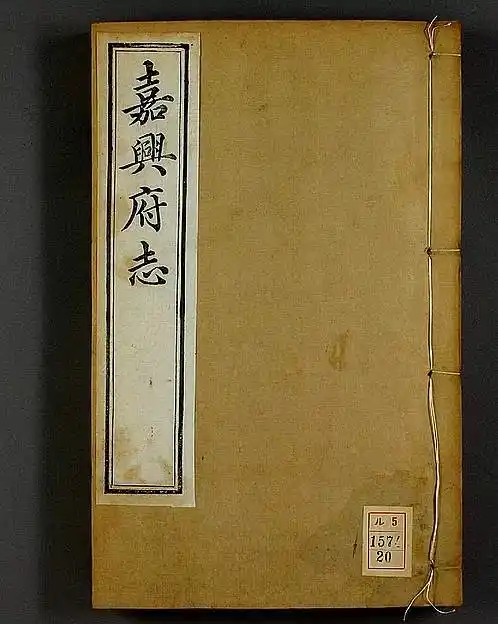 嘉興府志
ル 5
1571
20